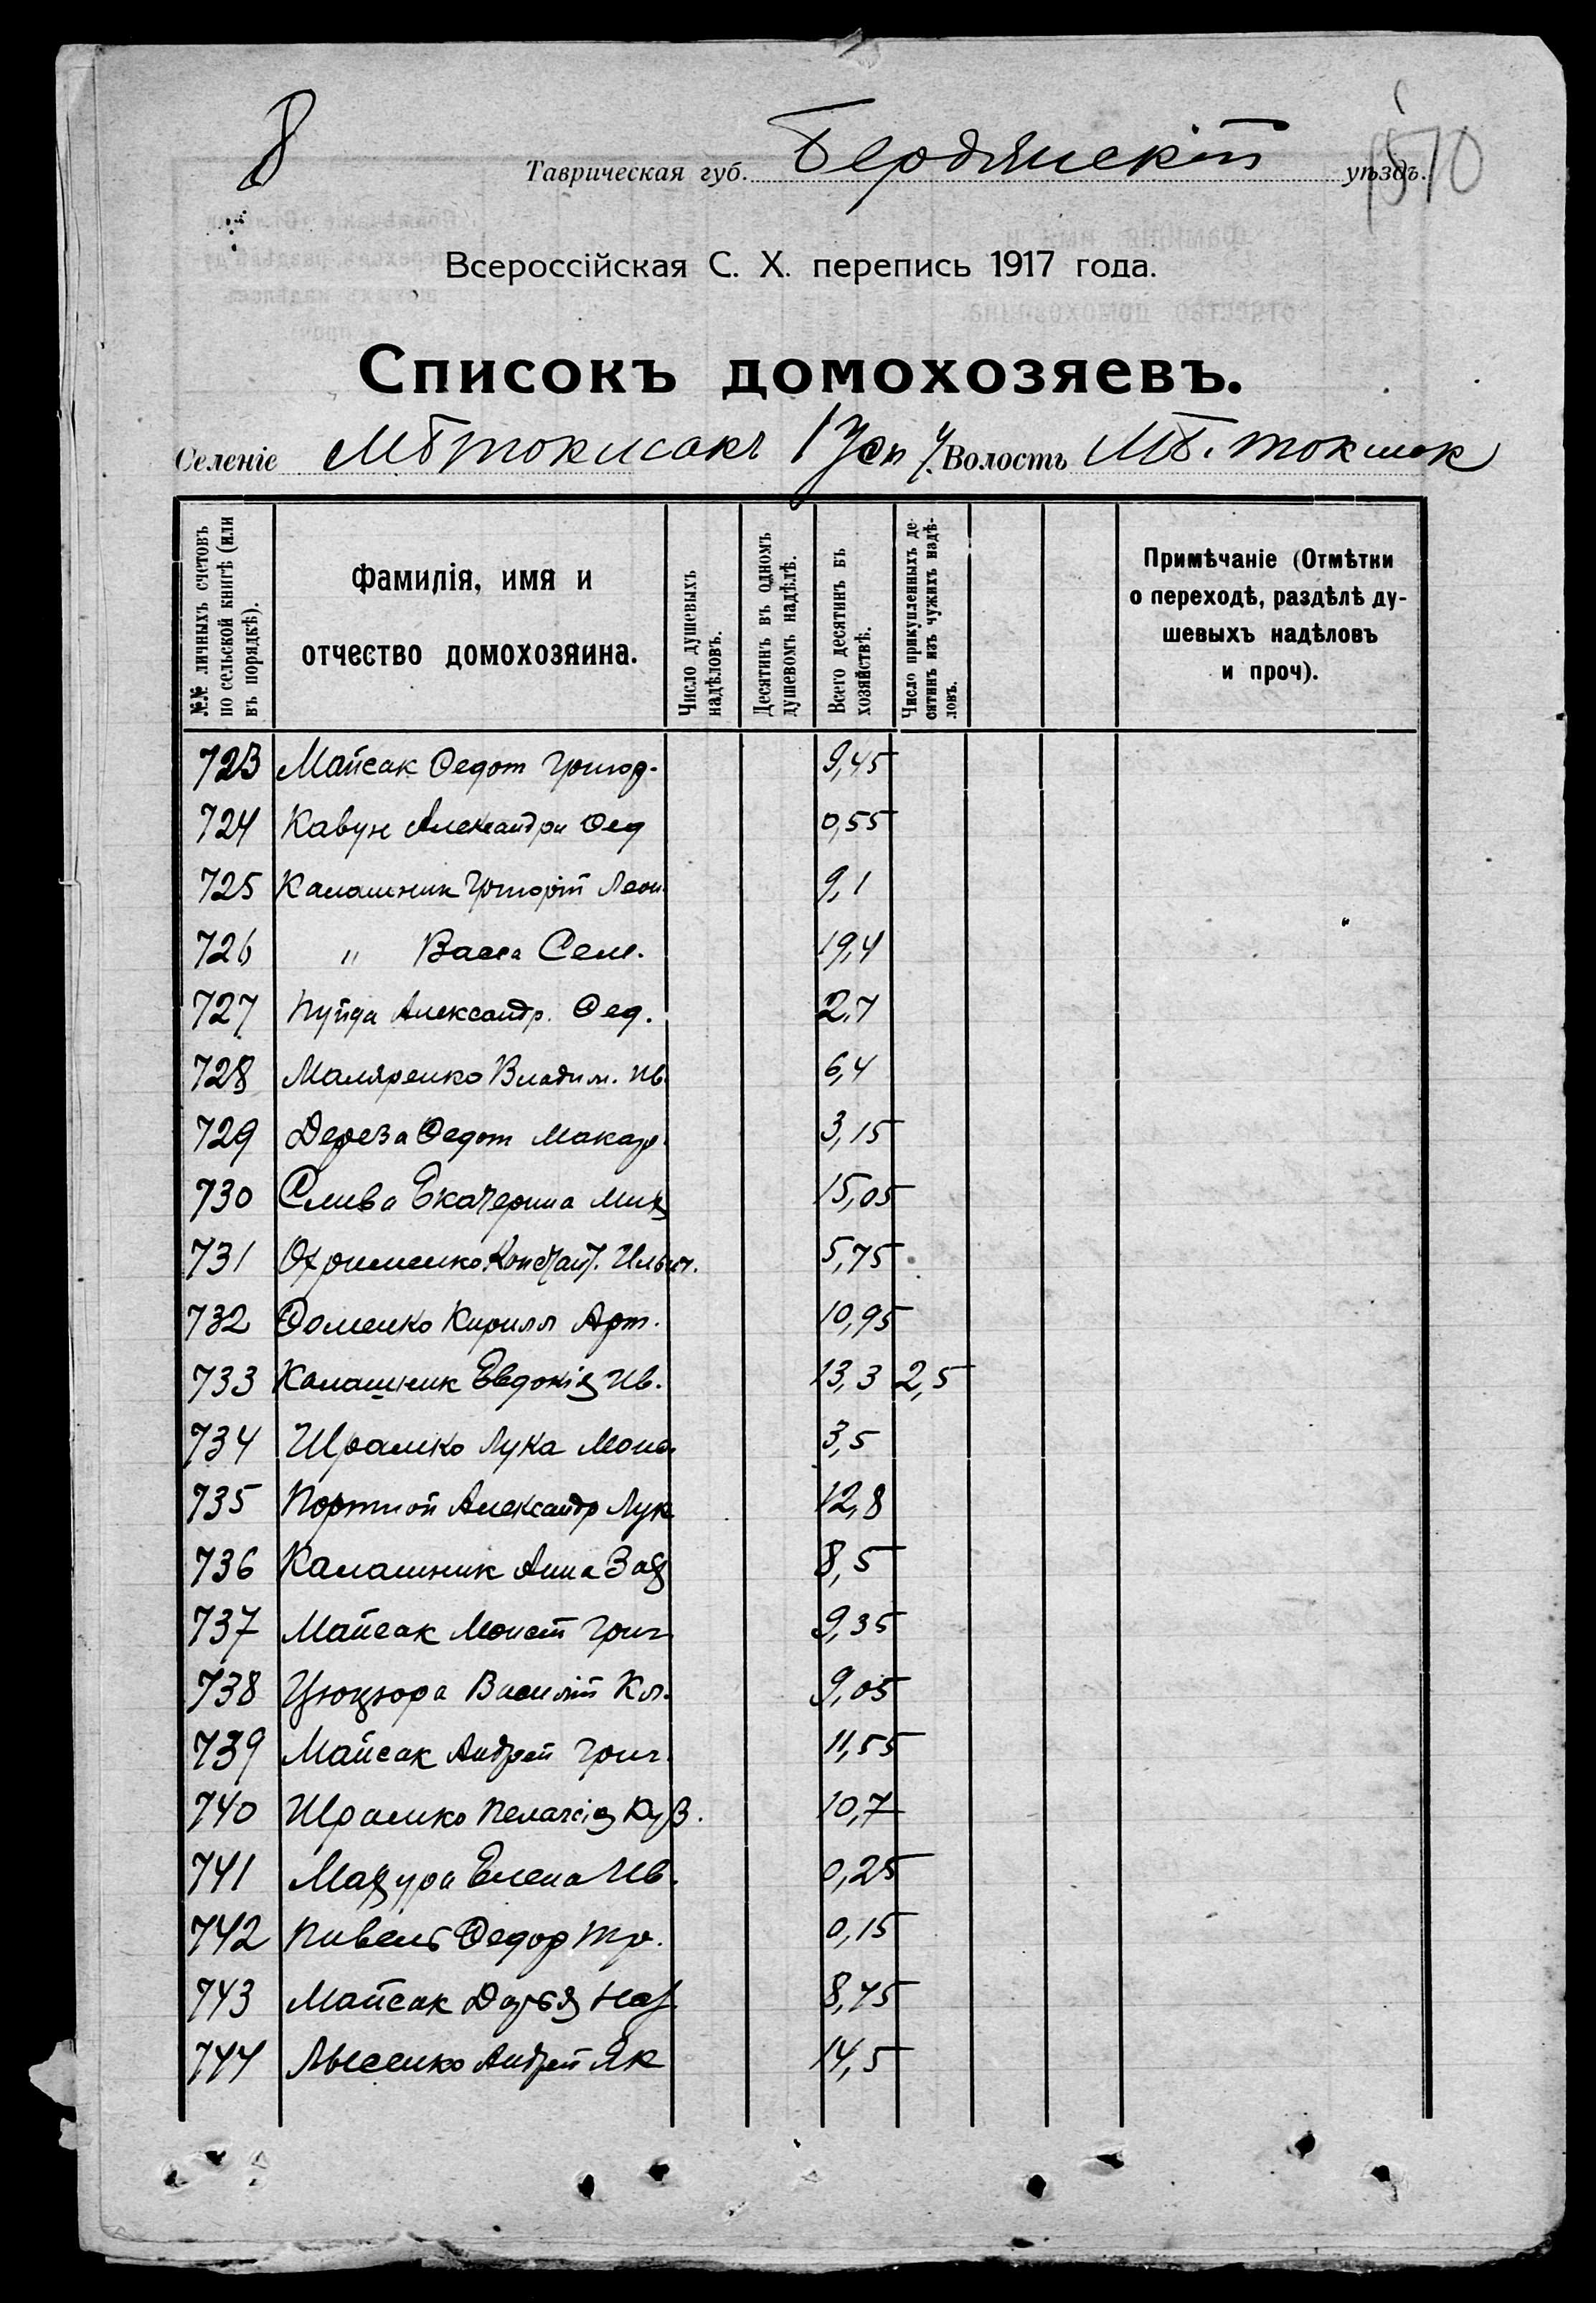 8
Таврическая губ. Бердянскій уѣздъ.
510
Всероссійская С. Х. перепись 1917 года.
Списокъ домохозяевъ.
Селеніе МБтокмакъ 1 Усп у. Волость МБ. токмак
№№ личныхъ счетовъ по сельской книгѣ (или въ порядкѣ).
Фамилія, имя и отчество домохозяина.
Число душевыхъ надѣловъ.
Десятинъ въ одномъ душевомъ надѣлѣ.
Всего десятинъ въ хозяйствѣ.
Число прикупленныхъ десятинъ изъ чужихъ надѣловъ.
Примѣчаніе (Отмѣтки о переходѣ, раздѣлѣ душевыхъ надѣловъ и проч).
723 Майсак Федот Григор. 9,45
724 Кавун Александра Фед 0,55
725 Калашник Григорій Леон. 9,1
726 " Васса Сем. 19,4
727 Пуйда Александр. Фед. 2,7
728 Маляренко Владим. Ив. 6,4
729 Дереза Федот Макар. 3,15
730 Слива Екатерина Мих 15,05
731 Охрименко Констант. Ильич. 5,75
732 Фоменко Кирилл Арт. 10,95
733 Калашник Евдокія Ив. 13,3 2,5
734 Шрамко Лука Моис 3,5
735 Портной Александр Лук 12,8
736 Калашник Анна Зах 8,5
737 Майсак Моисей Григ 9,35
738 Цюцюра Василій Кл. 9,05
739 Майсак Андрей Григ. 11,55
740 Шрамко Пелагія Куз. 10,7
741 Мазура Елена Ив. 0,25
742 Пивень Федор Тр. 0,15
743 Майсак Дарья Наз. 8,75
744 Лысенко Андрей Як 14,5